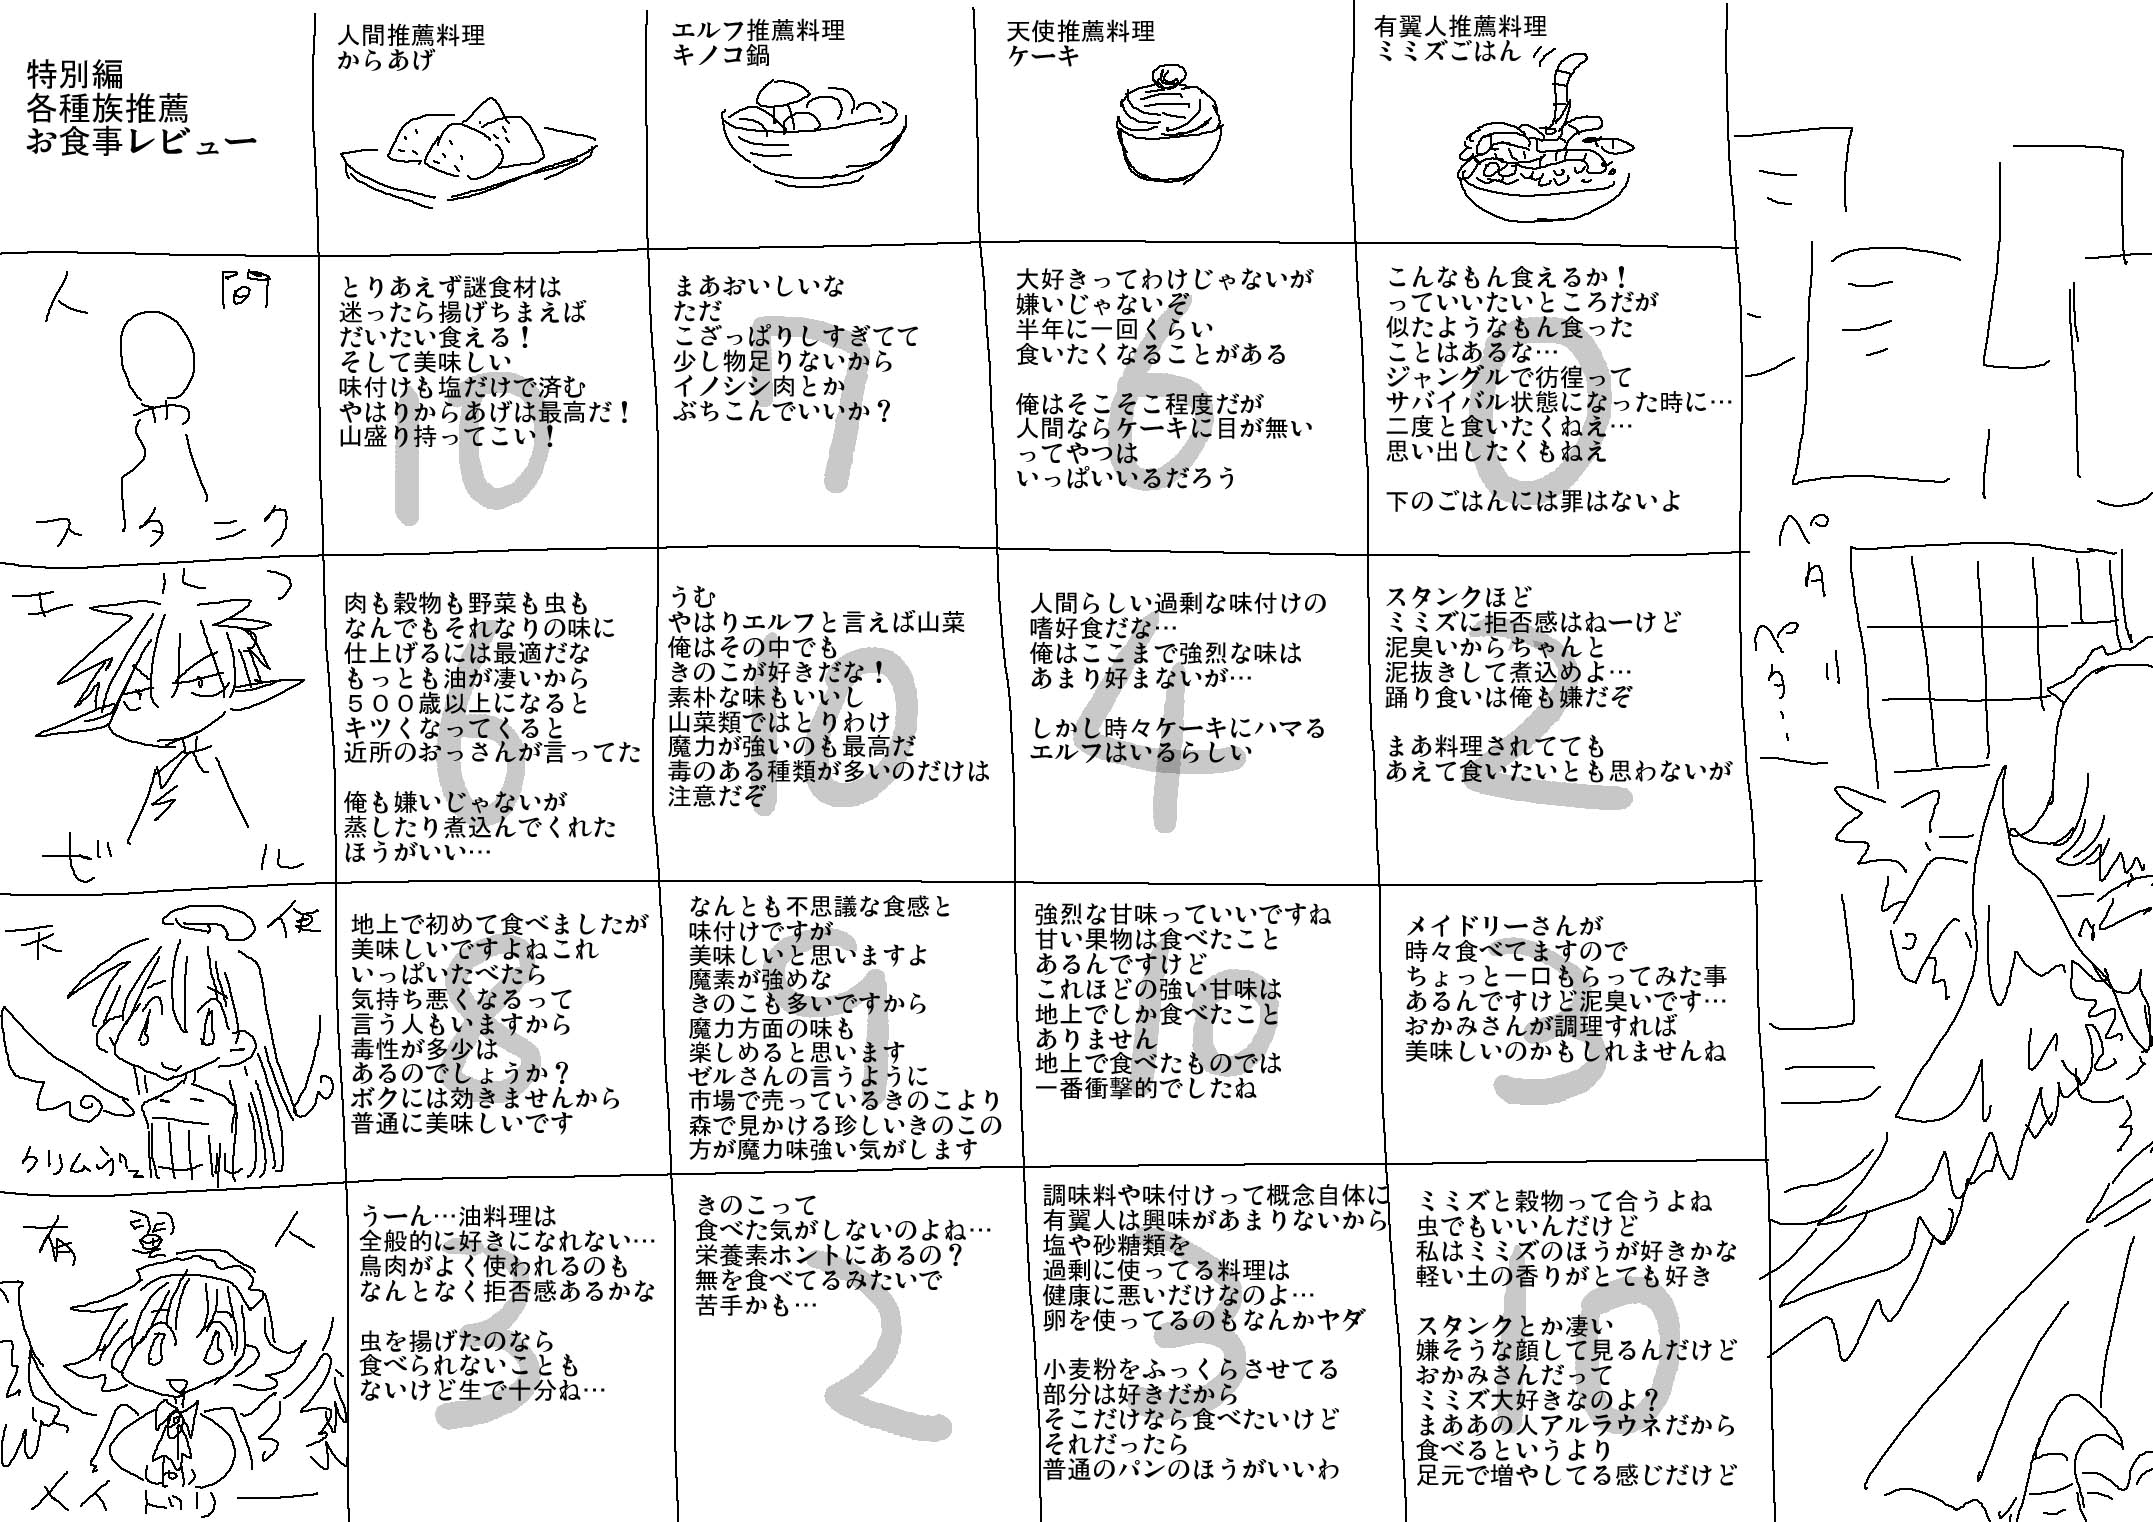 特別編
各種族推薦
お食事レビュー
人間推薦料理
からあげ
エルフ推薦料理
キノコ鍋
天使推薦料理
ケーキ
有翼人推薦料理
ミミズごはん
人間
スタンク
とりあえず謎食材は
迷ったら揚げちまえば
だいたい食える！
そして美味しい
味付けも塩だけで済む
やはりからあげは最高だ！
山盛り持ってこい！
10
まあおいしいな
ただ
こざっぱりしすぎてて
少し物足りないから
イノシシ肉とか
ぶちこんでいいか？
7
大好きってわけじゃないが
嫌いじゃないぞ
半年に一回くらい
食いたくなることがある
俺はそこそこ程度だが
人間ならケーキに目が無い
ってやつは
いっぱいいるだろう
6
こんなもん食えるか！
っていいたいところだが
似たようなもん食った
ことはあるな…
ジャングルで彷徨って
サバイバル状態になった時に…
二度と食いたくねえ…
思い出したくもねえ
下のごはんには罪はないよ
0
エルフ
ゼル
肉も穀物も野菜も虫も
なんでもそれなりの味に
仕上げるには最適だな
もっとも油が凄いから
５００歳以上になると
キツくなってくると
近所のおっさんが言ってた
俺も嫌いじゃないが
蒸したり煮込んでくれた
ほうがいい…
6
うむ
やはりエルフと言えば山菜
俺はその中でも
きのこが好きだな！
素朴な味もいいし
山菜類ではとりわけ
魔力が強いのも最高だ
毒のある種類が多いのだけは
注意だぞ
10
人間らしい過剰な味付けの
嗜好食だな…
俺はここまで強烈な味は
あまり好まないが…
しかし時々ケーキにハマる
エルフはいるらしい
4
スタンクほど
ミミズに拒否感はねーけど
泥臭いからちゃんと
泥抜きして煮込めよ…
踊り食いは俺も嫌だぞ
まあ料理されてても
あえて食いたいとも思わないが
2
天使
クリムヴェ
地上で初めて食べましたが
美味しいですよねこれ
いっぱいたべたら
気持ち悪くなるって
言う人もいますから
毒性が多少は
あるのでしょうか？
ボクには効きませんから
普通に美味しいです
8
なんとも不思議な食感と
味付けですが
美味しいと思いますよ
魔素が強めな
きのこも多いですから
魔力方面の味も
楽しめると思います
ゼルさんの言うように
市場で売っているきのこより
森で見かける珍しいきのこの
方が魔力味強い気がします
9
強烈な甘味っていいですね
甘い果物は食べたこと
あるんですけど
これほどの強い甘味は
地上でしか食べたこと
ありません
地上で食べたものでは
一番衝撃的でしたね
10
メイドリーさんが
時々食べてますので
ちょっと一口もらってみた事
あるんですけど泥臭いです…
おかみさんが調理すれば
美味しいのかもしれませんね
3
有翼人
メイドリー
うーん…油料理は
全般的に好きになれない…
鳥肉がよく使われるのも
なんとなく拒否感あるかな
虫を揚げたのなら
食べられないことも
ないけど生で十分ね…
3
きのこって
食べた気がしないのよね…
栄養素ホントにあるの？
無を食べてるみたいで
苦手かも…
2
調味料や味付けって概念自体に
有翼人は興味があまりないから
塩や砂糖類を
過剰に使ってる料理は
健康に悪いだけなのよ…
卵を使ってるのもなんかヤダ
小麦粉をふっくらさせてる
部分は好きだから
そこだけなら食べたいけど
それだったら
普通のパンのほうがいいわ
3
ミミズと穀物って合うよね
虫でもいいんだけど
私はミミズのほうが好きかな
軽い土の香りがとても好き
スタンクとか凄い
嫌そうな顔して見るんだけど
おかみさんだって
ミミズ大好きなのよ？
まああの人アルラウネだから
食べるというより
足元で増やしてる感じだけど
10
ペタリ
ペタ…